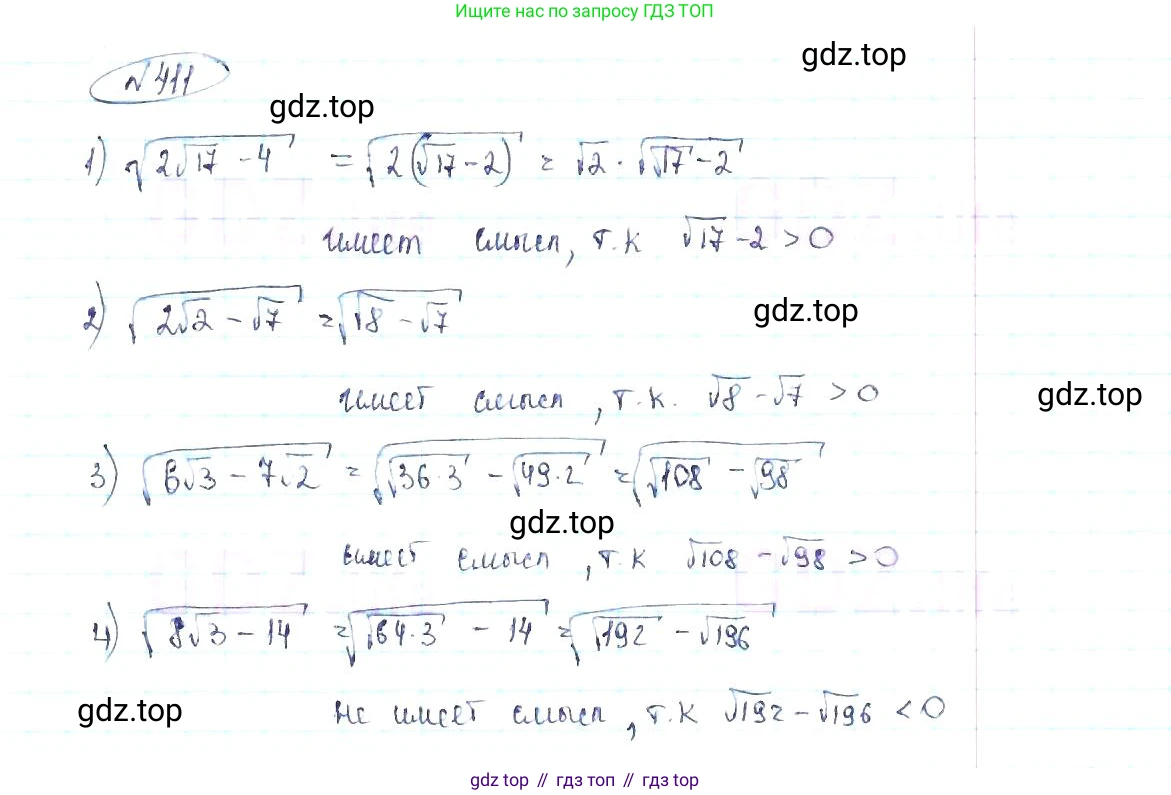 Ищите нас по запросу ГДЗ ТОП
gdz.top
№ 411
gdz.top
1) √(2√17 - 4) = √(2(√17 - 2)) = √2 · √(√17 - 2)
имеет смысл, т.к √17 - 2 > 0
2) √(2√2 - √7) = √(√8 - √7)
gdz.top
имеет смысл, т.к. √8 - √7 > 0
gdz.top
3) √(6√3 - 7√2) = √(√36·3 - √49·2) = √(√108 - √98)
gdz.top
имеет смысл, т.к √108 - √98 > 0
4) √(8√3 - 14) = √(√64·3 - 14) = √(√192 - √196)
gdz.top
не имеет смысл, т.к √192 - √196 < 0
gdz top // гдз топ // гдз top